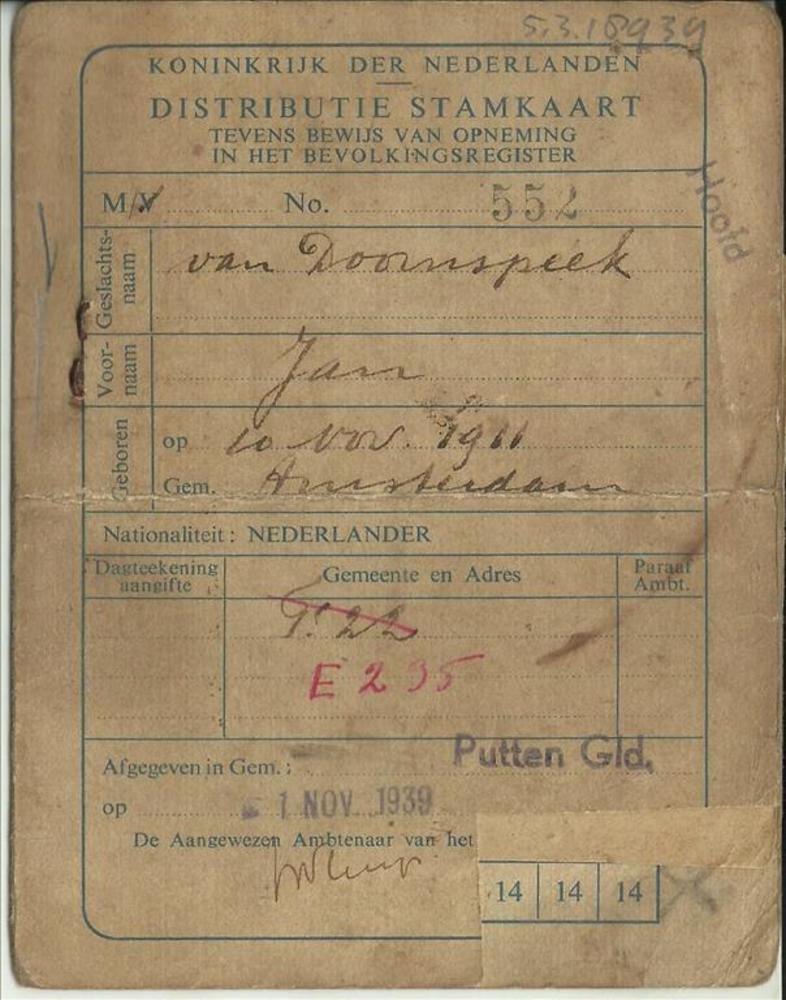 5.3.18939
KONINKRIJK DER NEDERLANDEN
DISTRIBUTIE STAMKAART
TEVENS BEWIJS VAN OPNEMING
IN HET BEVOLKINGSREGISTER
Hoofd
M/V No. 552
Geslachts-
naam
van Doornspeek
Voor-
naam
Jan
Geboren
op 10 Nov. 1911
Gem. Amsterdam
Nationaliteit: NEDERLANDER
Dagteekening
aangifte
Gemeente en Adres
Paraaf
Ambt.
22
E 295
Afgegeven in Gem.: Putten Gld.
op 1 NOV 1939
De Aangewezen Ambtenaar van het
14 14 14